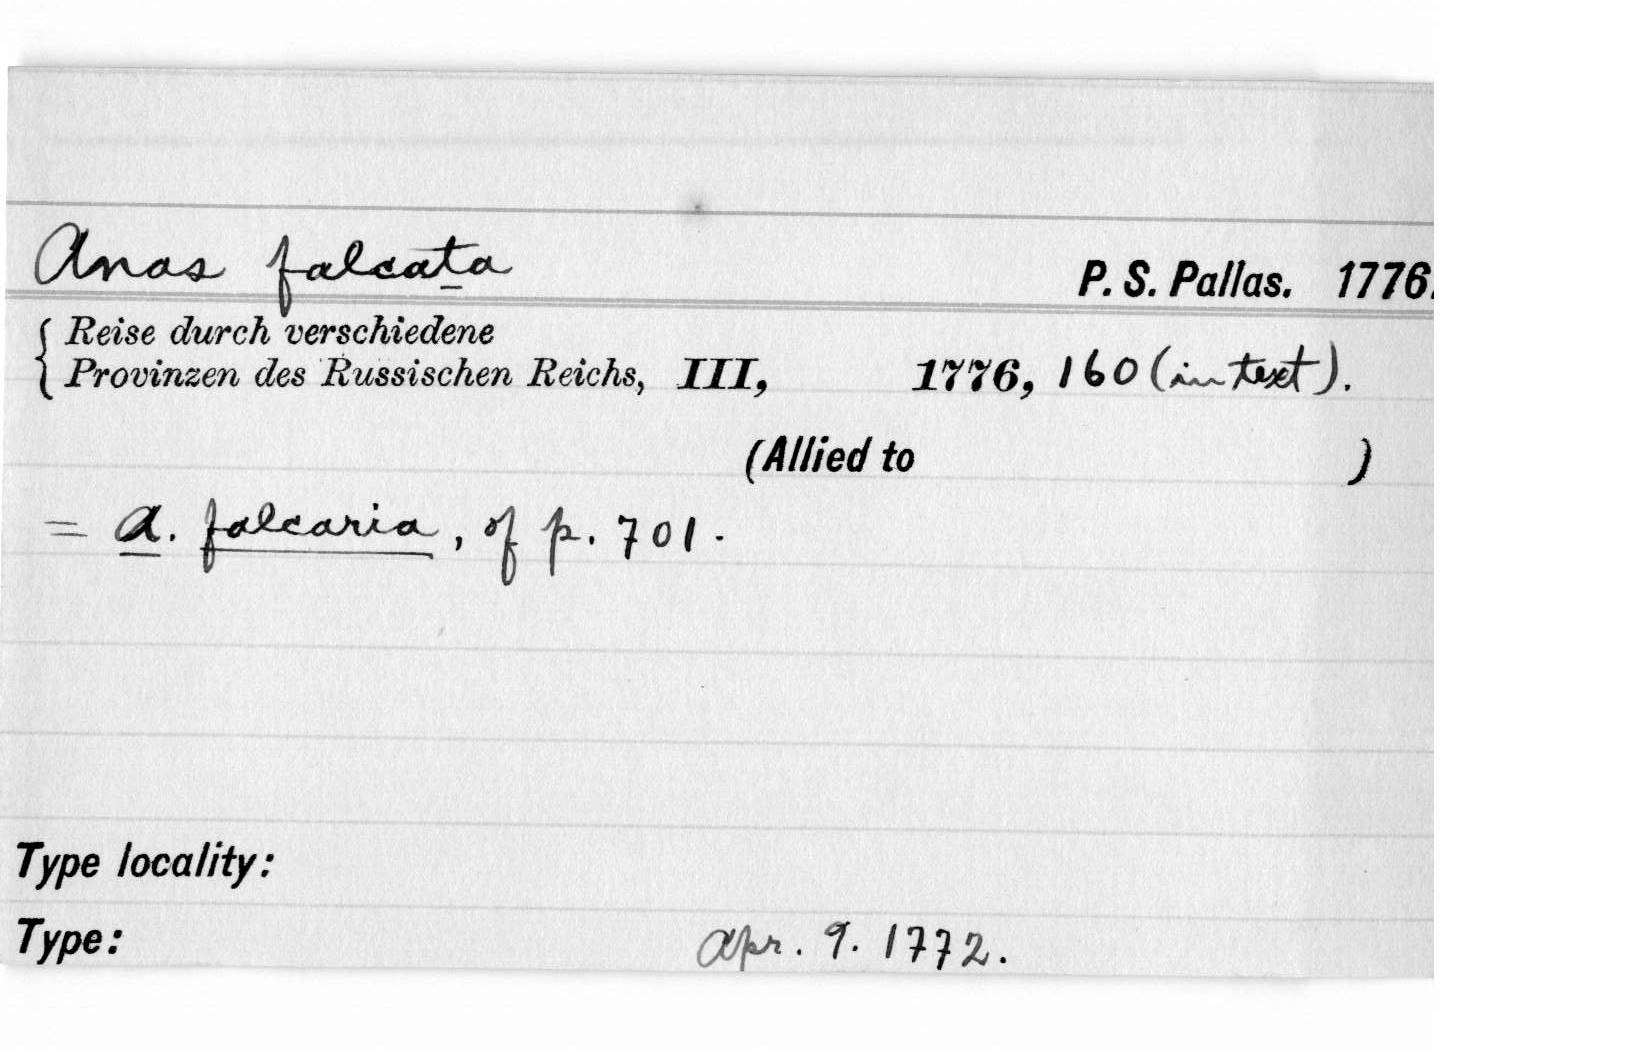 Anas falcata P. S. Pallas. 1776.
Reise durch verschiedene
Provinzen des Russischen Reichs, III, 1776, 160 (in text).
(Allied to )
= A. falcaria, of p. 701.
Type locality:
Type: Apr. 9. 1772.